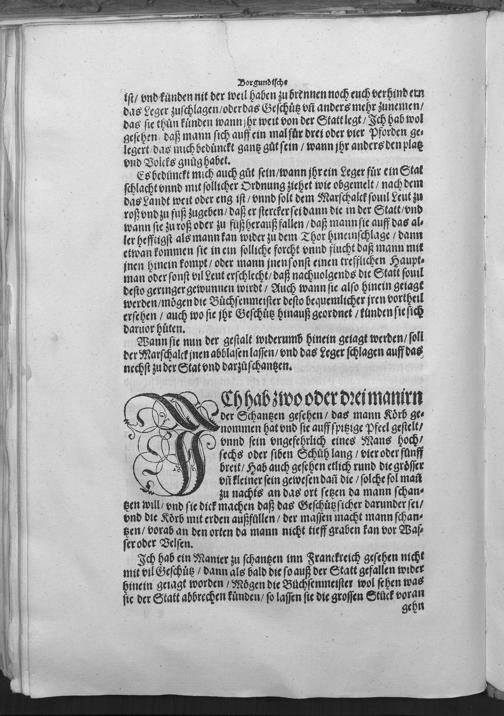 Borgundische
ist/ vnd künden nit der weil haben zu brennen noch euch verhindern
das Leger zuschlagen/ oder das Geschütz vñ anders mehr zunemen/
das sie thün künden wann jhr weit von der Statt legt/ Jch hab wol
gesehen/ daß mann sich auff ein mal für drei oder vier Pforden ge-
legert/ das mich bedünckt gantz güt sein/ wann jhr anders den platz
vnd Volcks gnüg habet.
Es bedünckt mich auch güt sein/ wann jhr ein Leger für ein Stat
schlacht vnnd mit sollicher Ordnung ziehet wie obgemelt/ nach dem
das Landt weit oder eng ist/ vnnd solt dem Marschalck souil Leut zu
roß vnd zu füß zugeben/ daß er stercker sei dann die in der Statt/ vnd
wann sie zu roß oder zu füß herauß fallen/ daß mann sie auff das al-
ler hefftigst als mann kan wider zu dem Thor hineinschlage/ dann
etwan kommen sie in ein solliche forcht vnnd flucht daß mann mit
jnen hinein kompt/ oder mann jnen sonst einen trefflichen Haupt-
man oder sonst vil Leut erschlecht/ daß nachuolgends die Statt souil
desto geringer gewunnen wirdt/ Auch wann sie also hinein geiagt
werden/ mögen die Büchsenmeister desto bequemlicher jren vortheil
ersehen/ auch wo sie jhr Geschütz hinauß geordnet/ künden sie sich
daruor hüten.
Wann sie nun der gestalt widerumb hinein geiagt werden/ soll
der Marschalck jnen abblasen lassen/ vnd das Leger schlagen auff das
nechst zu der Stat vnd darzü schantzen.
JCh hab zwo oder drei manirn
der Schantzen gesehen/ das mann Körb ge-
nommen hat vnd sie auff spitzige Pfeel gestelt/
vnnd sein vngefehrlich eines Mans hoch/
sechs oder siben Schüh lang/ vier oder fünff
breit/ Hab auch gesehen etlich rund die grösser
vñ kleiner sein gewesen dañ die/ solche sol mañ
zu nachts an das ort setzen da mann schan-
tzen will/ vnd sie dick machen daß das Geschütz sicher darunder sei/
vnd die Körb mit erden außfüllen/ der massen macht mann schan-
tzen/ vorab an den orten da mann nicht tieff graben kan vor Was-
ser oder Velsen.
Jch hab ein Manier zu schantzen inn Franckreich gesehen nicht
mit vil Geschütz/ dann als bald die so auß der Statt gefallen wider
hinein geiagt worden/ Mögen die Büchsenmeister wol sehen was
sie der Statt abbrechen künden/ so lassen sie die grossen Stück voran
gehn